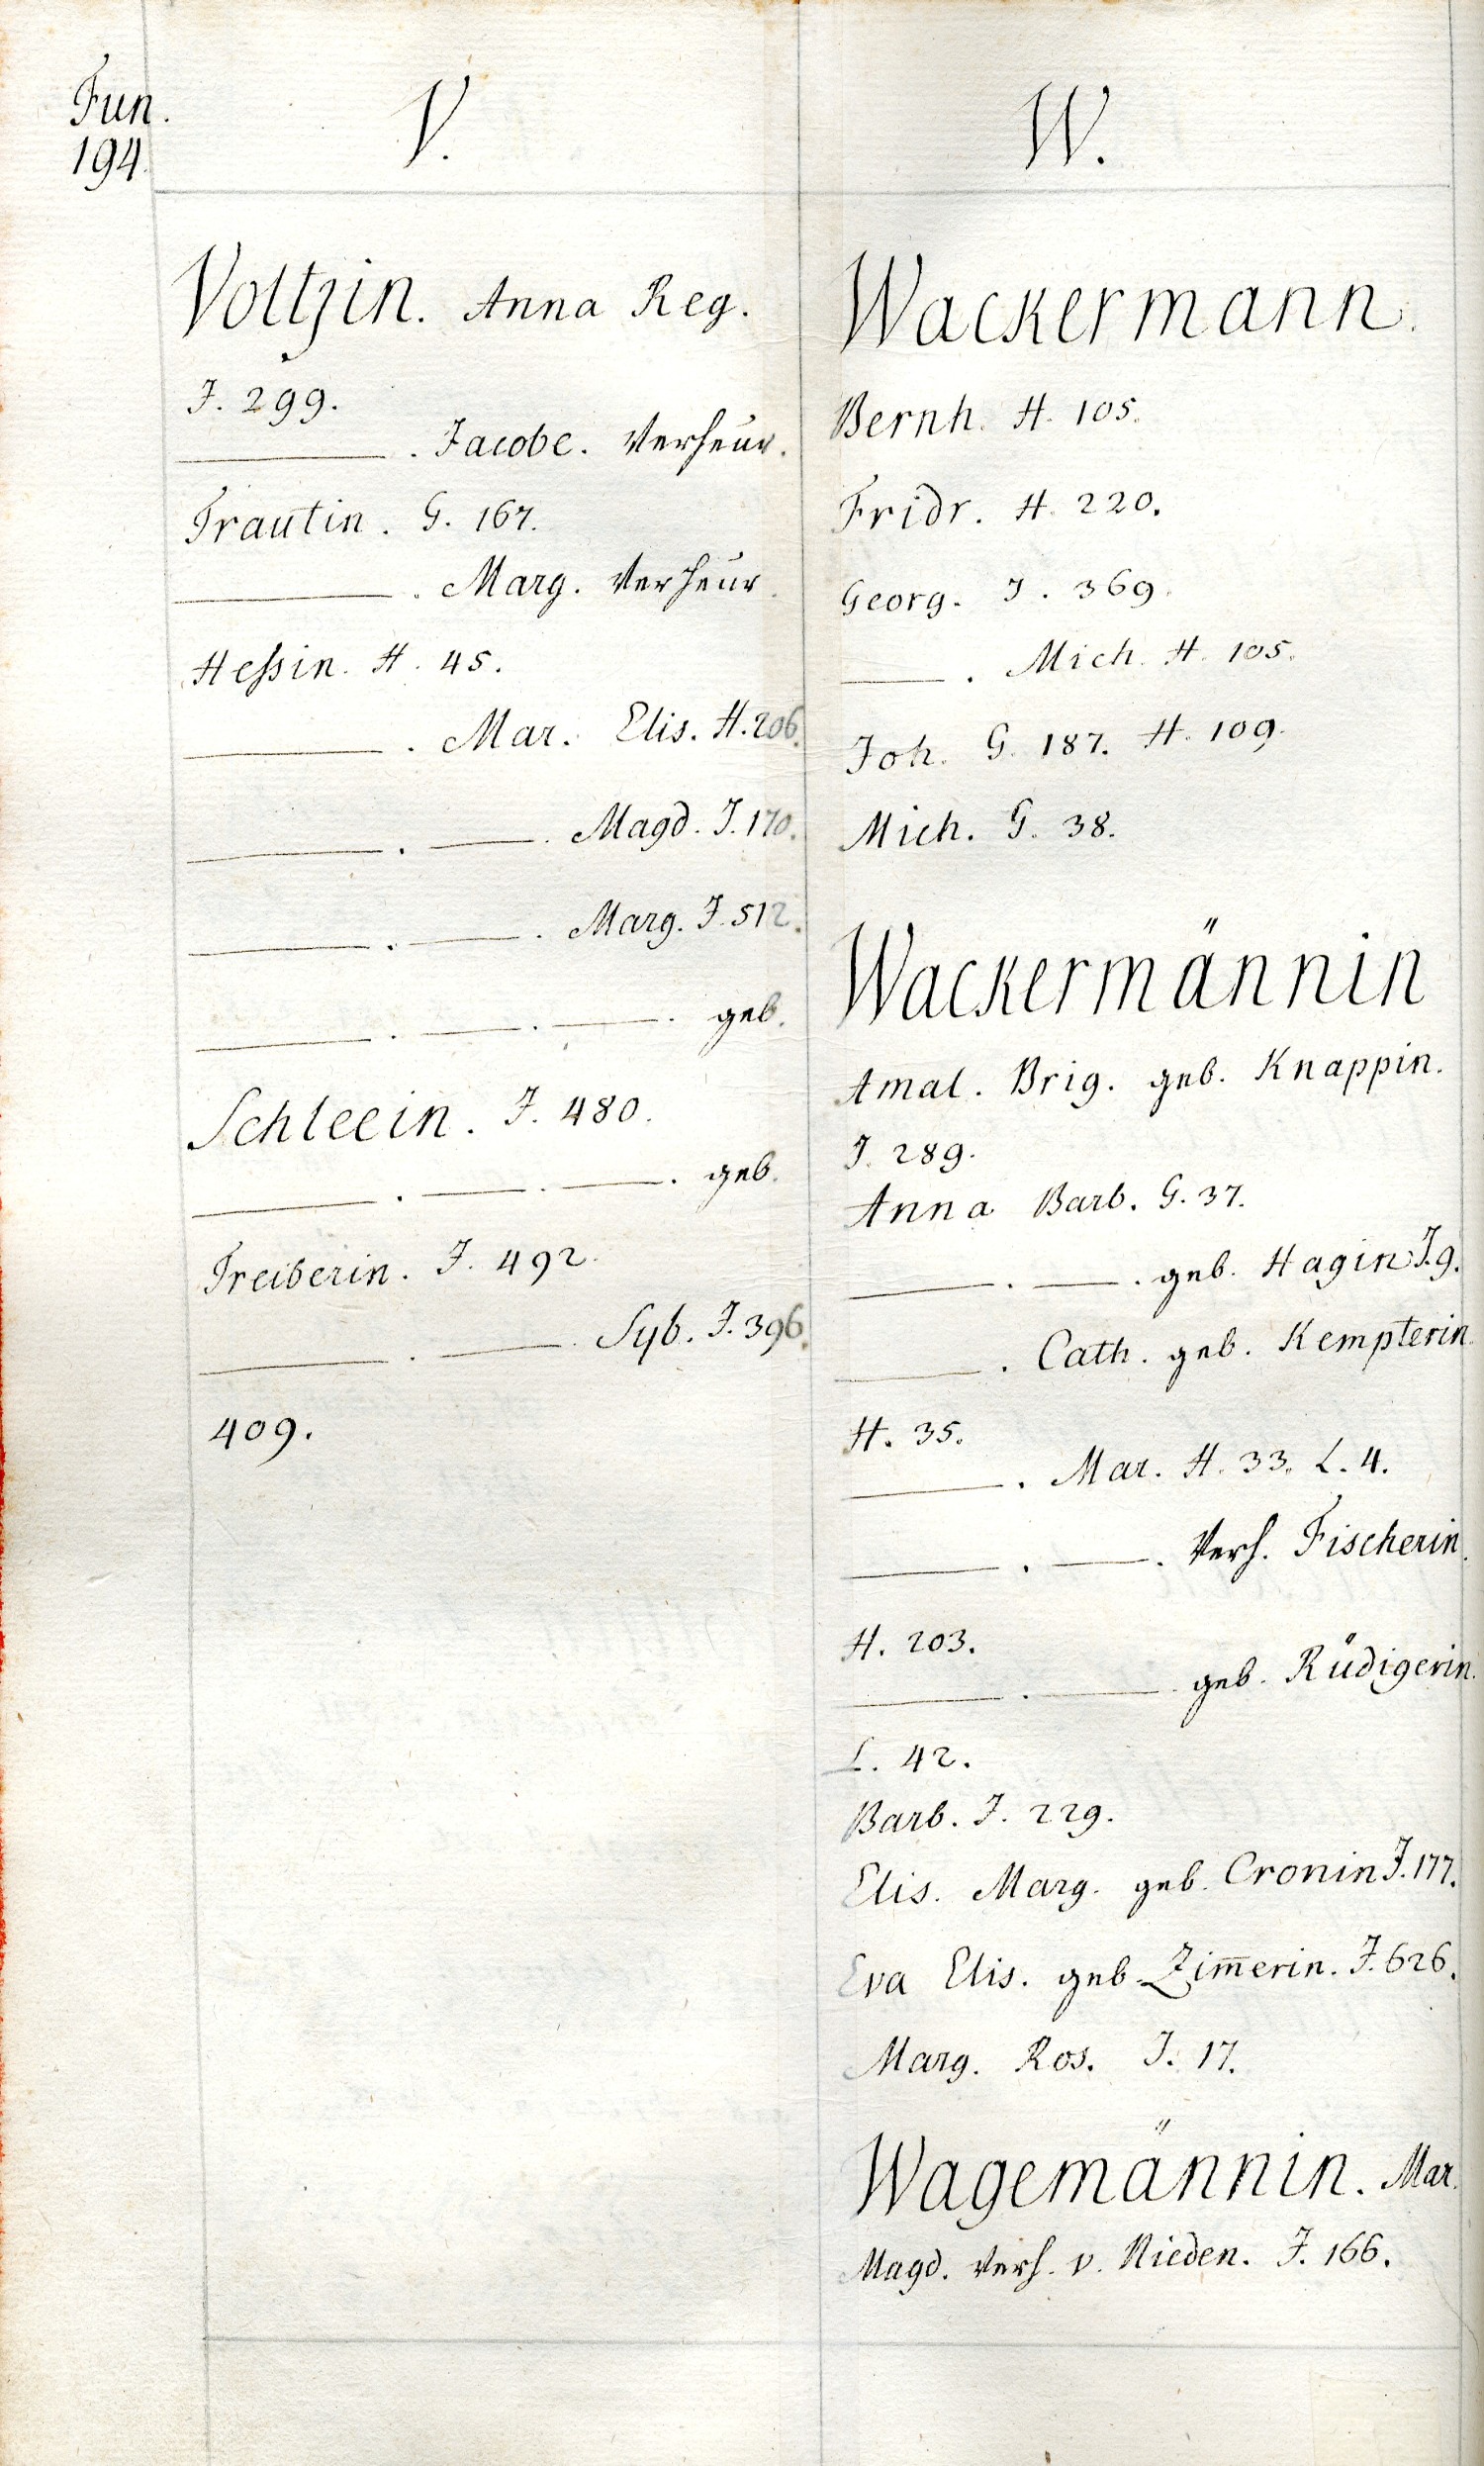 Fun.
194.
V.
Voltzin. Anna Reg.
J. 299.
——— . Jacobe. Verheur.
Trautin. G. 167.
——— . Marg. Verheur.
Heßin. H. 45.
——— . Mar. Elis. H. 206.
——— . —— . Magd. J. 170.
——— . —— . Marg. J. 512.
——— . —— . —— . geb.
Schleein. J. 480.
——— . —— . —— . geb.
Treiberin. J. 492.
——— . —— . Syb. J. 396.
409.
W.
Wackermann.
Bernh. H. 105.
Fridr. H. 220.
Georg. J. 369.
—— . Mich. H. 105.
Joh. G. 187. H. 109.
Mich. G. 38.
Wackermännin
Amal. Brig. geb. Knappin.
J. 289.
Anna Barb. G. 37.
——— . —— . geb. Hagin J. 9.
——— . Cath. geb. Kempterin.
H. 35.
——— . Mar. H. 33. L. 4.
——— . —— . Verh. Fischerin.
H. 203.
——— . —— . geb. Rüdigerin.
L. 42.
Barb. J. 229.
Elis. Marg. geb. Cronin J. 177.
Eva Elis. geb. Zim̅erin. J. 626.
Marg. Ros. J. 17.
Wagemännin. Mar.
Magd. Verh. v. Nieden. J. 166.